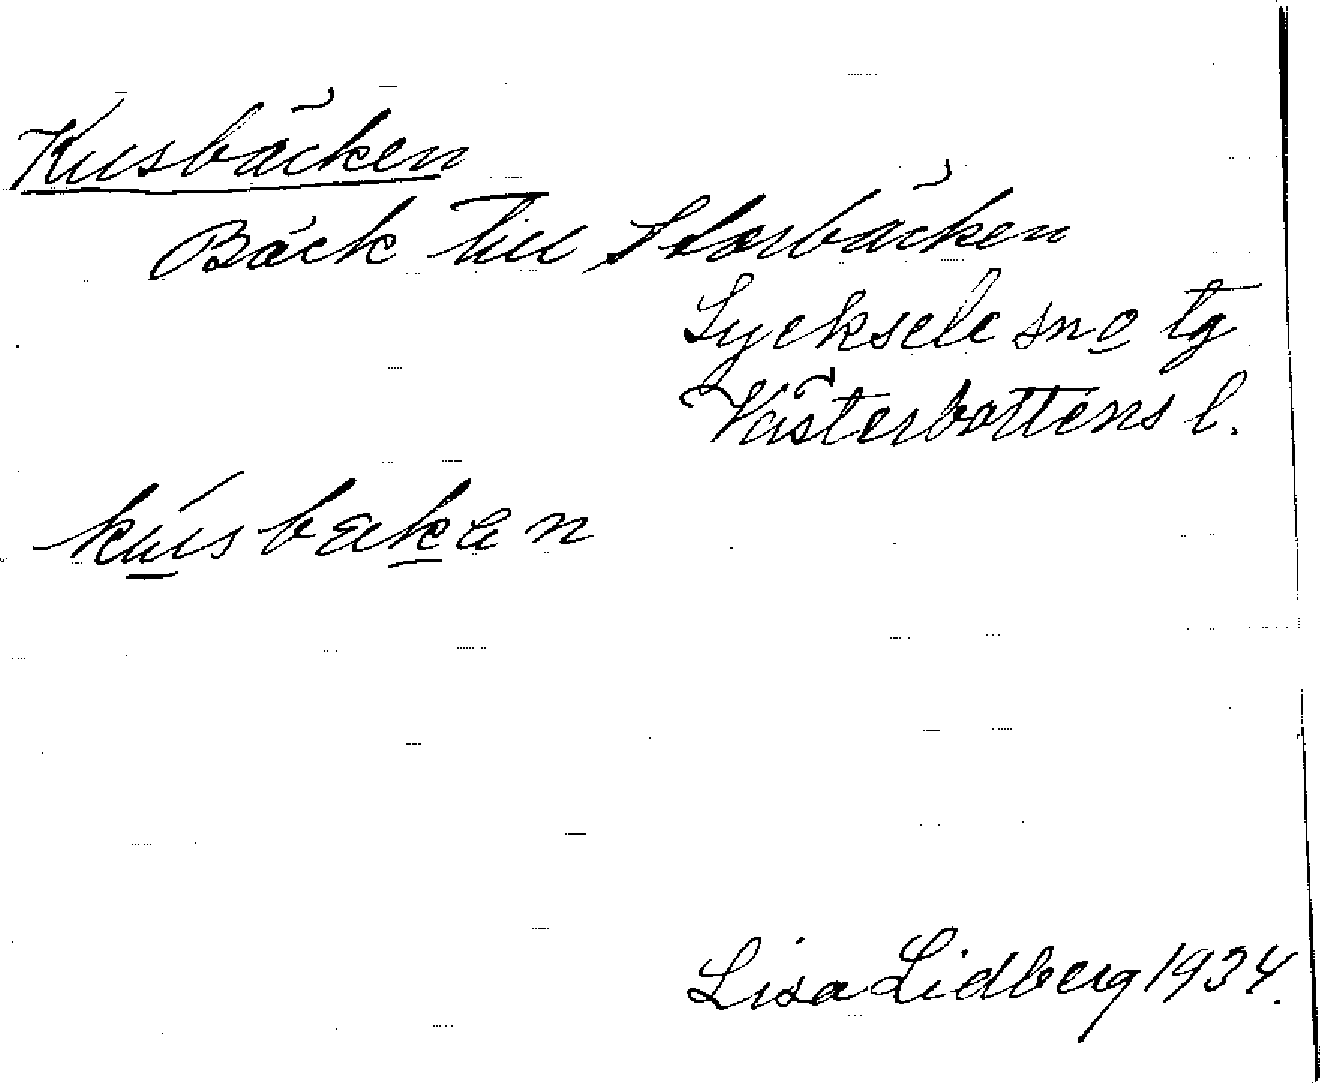 Kusbäcken
Bäck till Storbäcken
Lycksele sn o tg
Västerbottens l.
kusbækæn
Lisa Lidberg 1934.